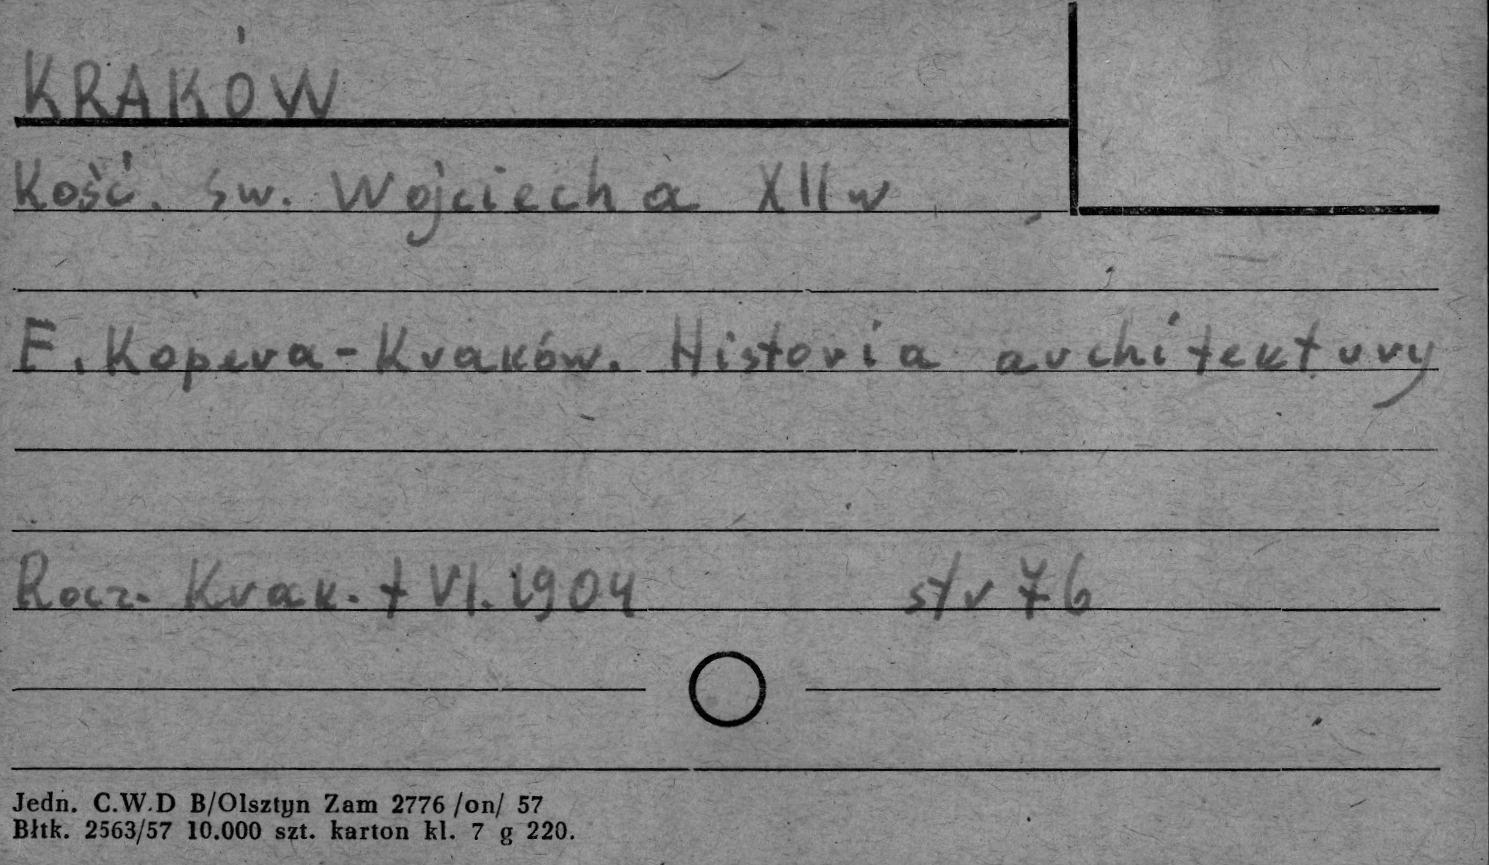 KRAKÓW
Kość. św. Wojciecha XII w
F. Kopera - Kraków. Historia architektury
Rocz. Krak. t VI. 1904 str 76
Jedn. C.W.D B/Olsztyn Zam 2776 /on/ 57
Błtk. 2563/57 10.000 szt. karton kl. 7 g 220.